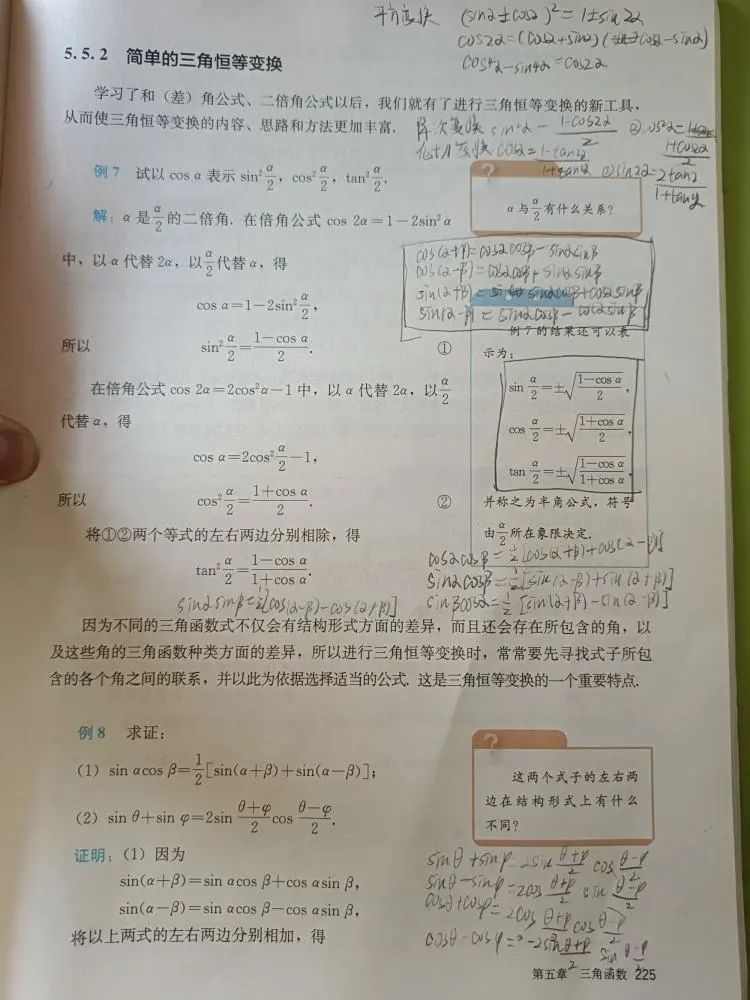 平方变换 (sinα±cosα)²=1±sin2α
cos2α=(cosα+sinα)(cosα-sinα)
cos⁴α-sin⁴α=cos2α
5.5.2 简单的三角恒等变换
学习了和（差）角公式、二倍角公式以后，我们就有了进行三角恒等变换的新工具，
从而使三角恒等变换的内容、思路和方法更加丰富．
降次变换 sin²α= (1-cos2α)/2 ②cos²α= (1+cos2α)/2
例7 试以 cos α 表示 sin² α/2，cos² α/2，tan² α/2．
α 与 α/2 有什么关系？
解：α 是 α/2 的二倍角．在倍角公式 cos 2α=1-2sin²α
中，以 α 代替 2α，以 α/2 代替 α，得
cos(α+β)=cosαcosβ-sinαsinβ
cos(α-β)=cosαcosβ+sinαsinβ
sin(α+β)=sinαcosβ+cosαsinβ
sin(α-β)=sinαcosβ-cosαsinβ
cos α=1-2sin² α/2，
所以 sin² α/2=(1-cos α)/2． ①
例7的结果还可以表
示为：
sin α/2=±√((1-cos α)/2)，
cos α/2=±√((1+cos α)/2)，
tan α/2=±√((1-cos α)/(1+cos α))，
并称之为半角公式，符号
由 α/2 所在象限决定．
在倍角公式 cos 2α=2cos²α-1 中，以 α 代替 2α，以 α/2
代替 α，得
cos α=2cos² α/2-1，
所以 cos² α/2=(1+cos α)/2． ②
将①②两个等式的左右两边分别相除，得
tan² α/2=(1-cos α)/(1+cos α)．
cosαcosβ=½[cos(α+β)+cos(α-β)]
sinαcosβ=½[sin(α-β)+sin(α+β)]
sinβcosα=½[sin(α+β)-sin(α-β)]
sinαsinβ=½[cos(α-β)-cos(α+β)]
因为不同的三角函数式不仅会有结构形式方面的差异，而且还会存在所包含的角，以
及这些角的三角函数种类方面的差异，所以进行三角恒等变换时，常常要先寻找式子所包
含的各个角之间的联系，并以此为依据选择适当的公式．这是三角恒等变换的一个重要特点．
例8 求证：
（1）sin αcos β=1/2[sin(α+β)+sin(α-β)]；
（2）sin θ+sin φ=2sin (θ+φ)/2 cos (θ-φ)/2．
这两个式子的左右两
边在结构形式上有什么
不同？
证明：（1）因为
sin(α+β)=sin αcos β+cos αsin β，
sin(α-β)=sin αcos β-cos αsin β，
将以上两式的左右两边分别相加，得
sinθ+sinφ=2sin (θ+φ)/2 cos (θ-φ)/2
sinθ-sinφ=2cos (θ+φ)/2 sin (θ-φ)/2
cosθ+cosφ=2cos (θ+φ)/2 cos (θ-φ)/2
cosθ-cosφ=-2sin (θ+φ)/2 sin (θ-φ)/2
第五章 三角函数 225